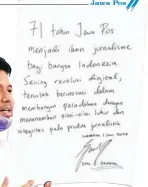 Jawa Pos
71 tahun Jawa Pos
menjadi ikon jurnalisme
bagi bangsa Indonesia.
Seiring revolusi digital,
teruslah berinovasi dalam
membangun peradaban dengan
menanamkan nilai-nilai luhur dan
integritas pada produk jurnalisme